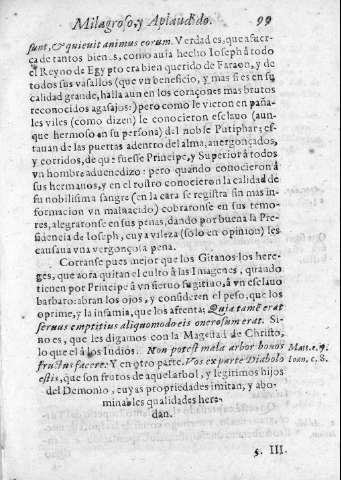 Milagroso, y Aplaudido. 99
sunt, & quieuit animus eorum. Verdad es, que a fuer-
ça de tantos bienes, como auia hecho Ioseph â todo
el Reyno de Egypto era bien querido de Faraon, y de
todos sus vasallos (que vn beneficio, y mas si es en su
calidad grande, halla aun en los coraçones mas brutos
reconocidos agasajos:) pero como le vieron en paña-
les viles (como dizen) le conocieron esclauo (aun-
que hermoso en su persona) del noble Putiphar; es-
tauan de las puertas adentro del alma, auergonçados,
y corridos, de que fuesse Principe, y Superior â todos
vn hombre aduenedizo: pero quando conocieron â
sus hermanos, y en el rostro conocieron la calidad de
su nobilisima sangre (en la cara se registra sin mas in-
formacion vn mal nacido) cobraronse en sus temo-
res, alegraronse en sus penas, dando por buena la Pre-
sidencia de Ioseph, cuya vileza (solo en opinion) les
causaua vna vergonçosa pena.
Corranse pues mejor que los Gitanos los here-
ges, que aora quitan el culto â las Imagenes, quando
tienen por Principe â vn sieruo fugitiuo, â vn esclauo
barbaro: abran los ojos, y consideren el peso, que los
oprime, y la infamia, que los afrenta; Quia tamē erat
seruus emptitius aliquomodo eis onerosum erat. Si-
no es, que les digamos con la Magestad de Christo,
lo que el â los Iudios. Non potest mala arbor bonos Matt. c. 7.
fructus facere: Y en otro parte. Vos ex parte Diabolo Ioan. c. 8.
estis, que son frutos de aquel arbol, y legitimos hijos
del Demonio, cuyas propriedades imitan, y abo-
minables qualidades here-
dan.
§. III.